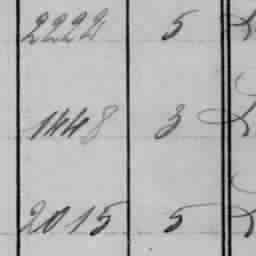 2222 5
1448 3
2015 5